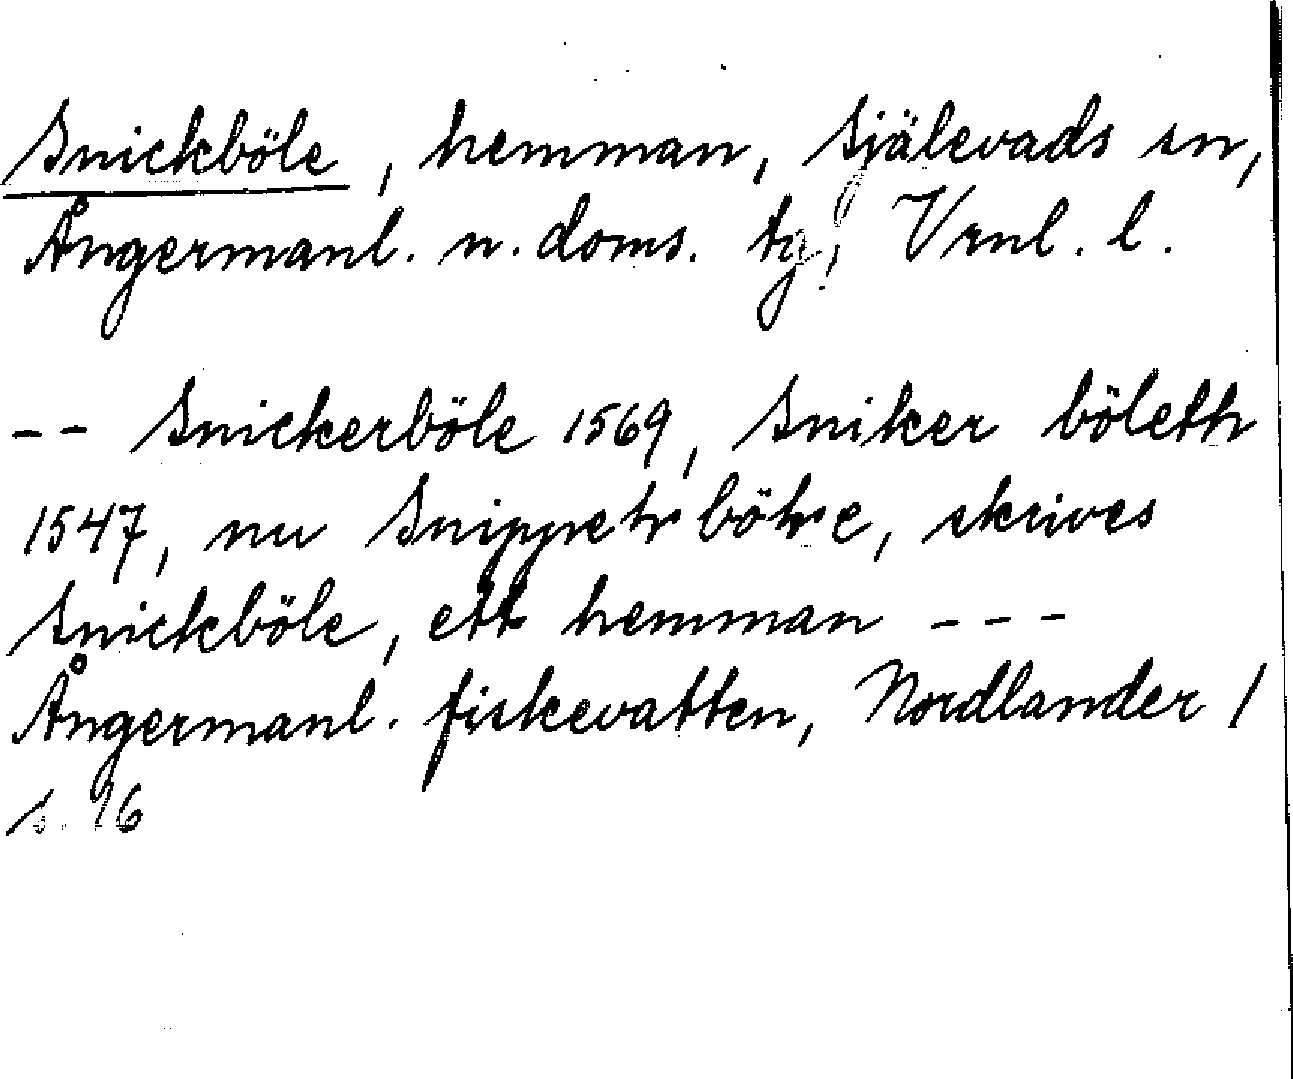 Snickböle, hemman, Själevads sn,
Ångermanl. n. doms. tg, Vrnl. l.
-- Snickerböle 1569, Sniker böleth
1547, nu böhre, skrives
Snickböle, ett hemman ---
Ångermanl. fiskevatten, Nordlander 1
s. 16